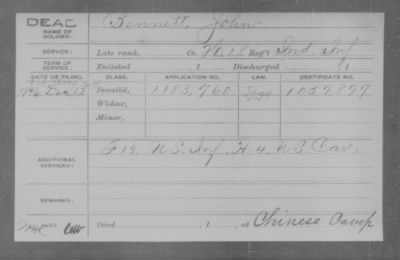 DEAC Bennett John
NAME OF
SOLDIER:
SERVICE: Late rank, Co. F. 18 Reg't Ind. Inf.
TERM OF
SERVICE: Enlisted , 1 Discharged , 1
DATE OF FILING. CLASS. APPLICATION NO. LAW. CERTIFICATE NO.
1892 Dec 13 Invalid, 1182,760 1059,877
Widow,
Minor,
ADDITIONAL
SERVICES: F 19. U.S. Inf. H. 4. U.S. Cav.
REMARKS:
Died , 1 , at Chinese Camp